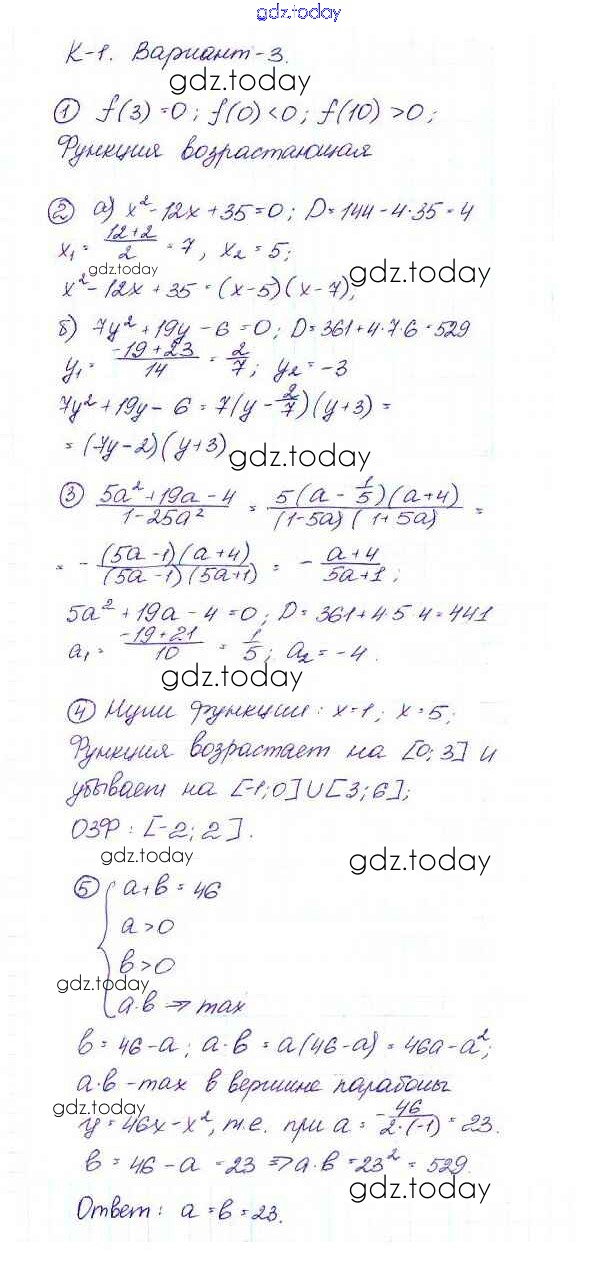 gdz.today
К-1. Вариант-3.
gdz.today
① f(3)=0; f(0)<0; f(10)>0;
Функция возрастающая
② а) x²-12x+35=0; D=144-4·35=4
x₁ = (12+2)/2 = 7, x₂=5;
gdz.today
gdz.today
x²-12x+35=(x-5)(x-7);
б) 7y²+19y-6=0; D=361+4·7·6=529
y₁ = (-19+23)/14 = 2/7; y₂=-3
7y²+19y-6=7(y-2/7)(y+3)=
=(7y-2)(y+3)
gdz.today
③ (5a²+19a-4)/(1-25a²) = (5(a-1/5)(a+4))/((1-5a)(1+5a)) =
= -((5a-1)(a+4))/((5a-1)(5a+1)) = -(a+4)/(5a+1);
5a²+19a-4=0; D=361+4·5·4=441
a₁ = (-19+21)/10 = 1/5; a₂=-4.
gdz.today
④ Нули функции: x=1; x=5;
Функция возрастает на [0;3] и
убывает на [-1;0]∪[3;6];
ОЗФ: [-2;2].
gdz.today
gdz.today
⑤ { a+b=46
a>0
b>0
gdz.today
a·b ⇒ max
b=46-a; a·b=a(46-a)=46a-a²;
a·b-max в вершине параболы
gdz.today
y=46x-x², т.е. при a = -46/(2·(-1)) = 23.
b=46-a=23 ⇒ a·b=23²=529.
gdz.today
Ответ: a=b=23.